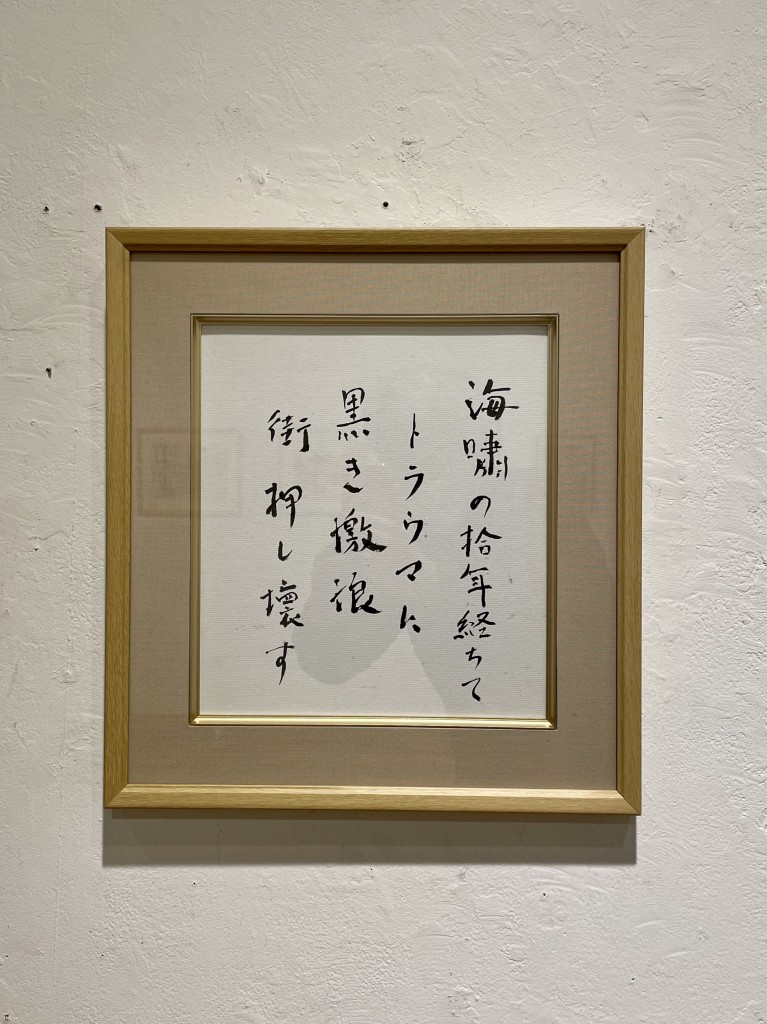 海嘯の拾年経ちて
トラウマに
黒き激浪
街押し壊す